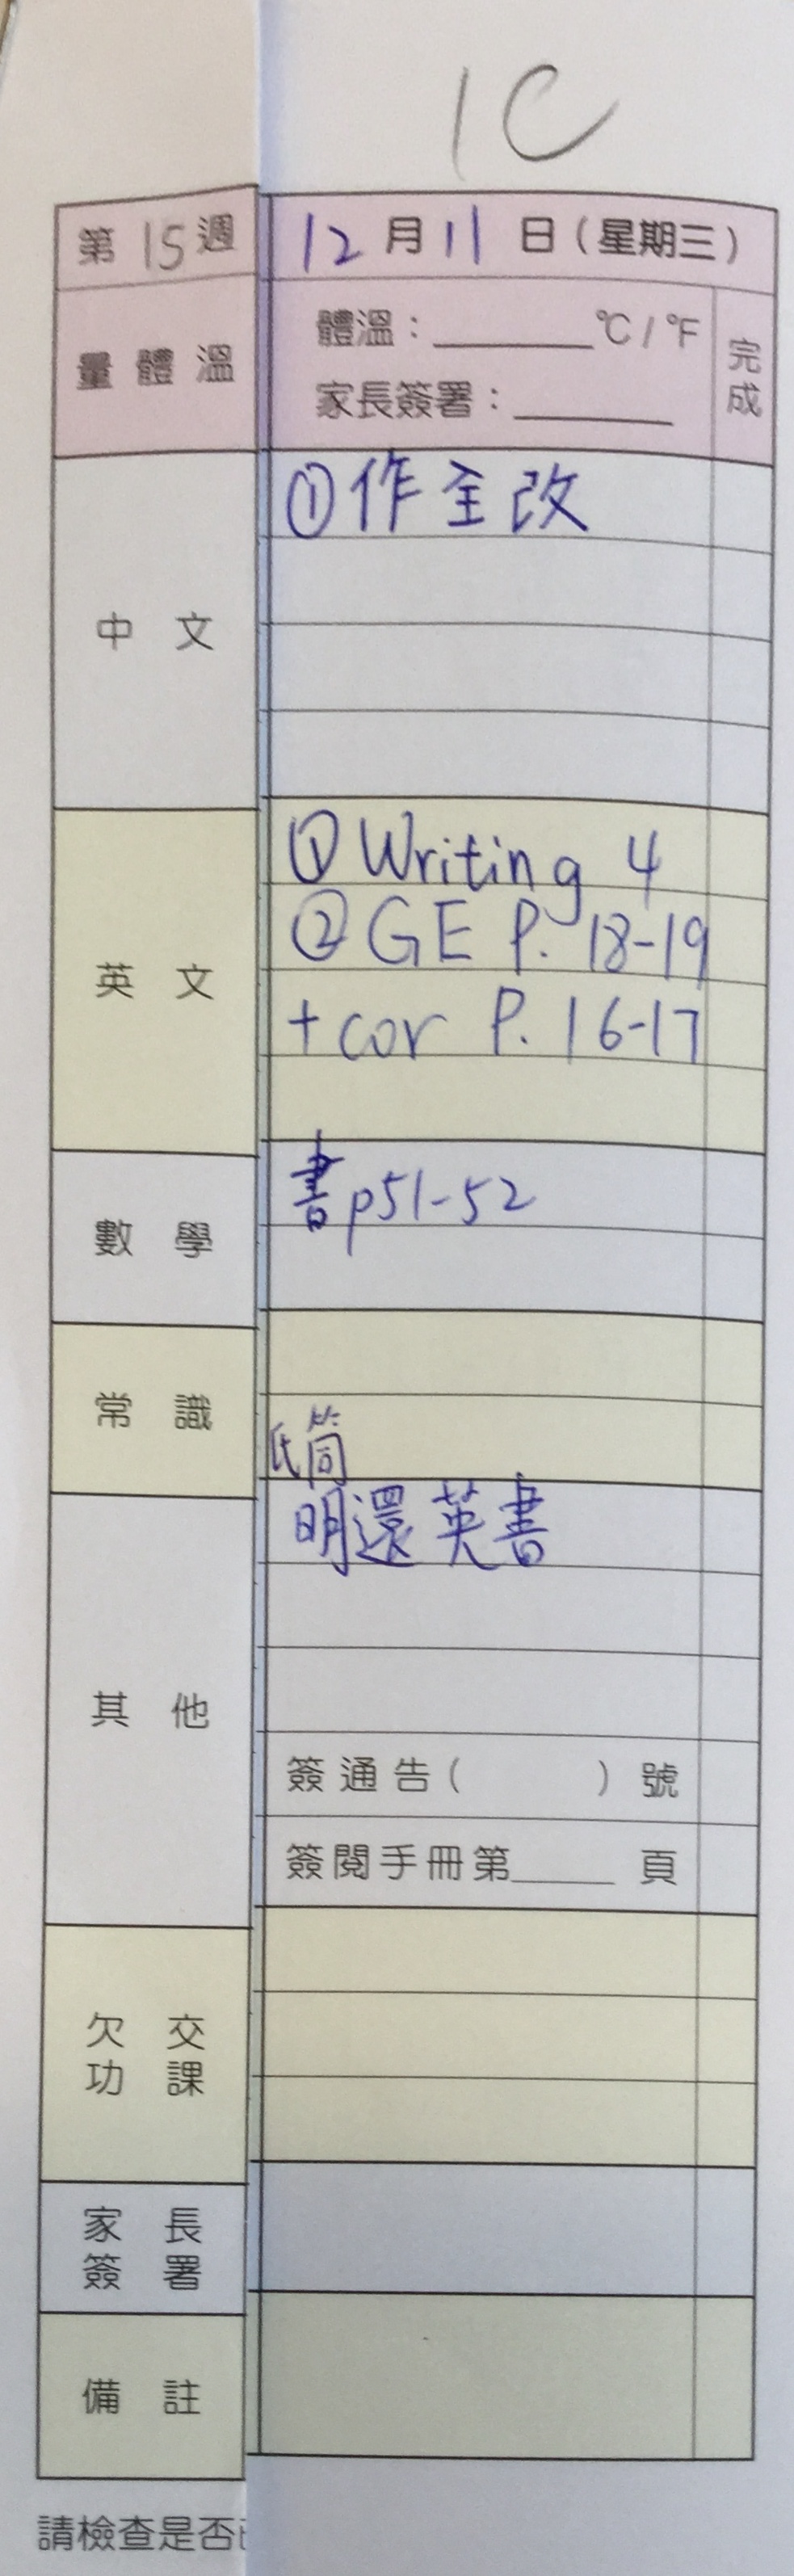 1C
第15週 12月11日（星期三）
量體溫
體溫：______°C / °F
家長簽署：______
完成
中文
①作全改
英文
①Writing 4
②GE P. 18-19
+cor P. 16-17
數學
書p51-52
常識
筒
其他
明還英書
簽通告（ ）號
簽閱手冊第____頁
欠交
功課
家長
簽署
備註
請檢查是否